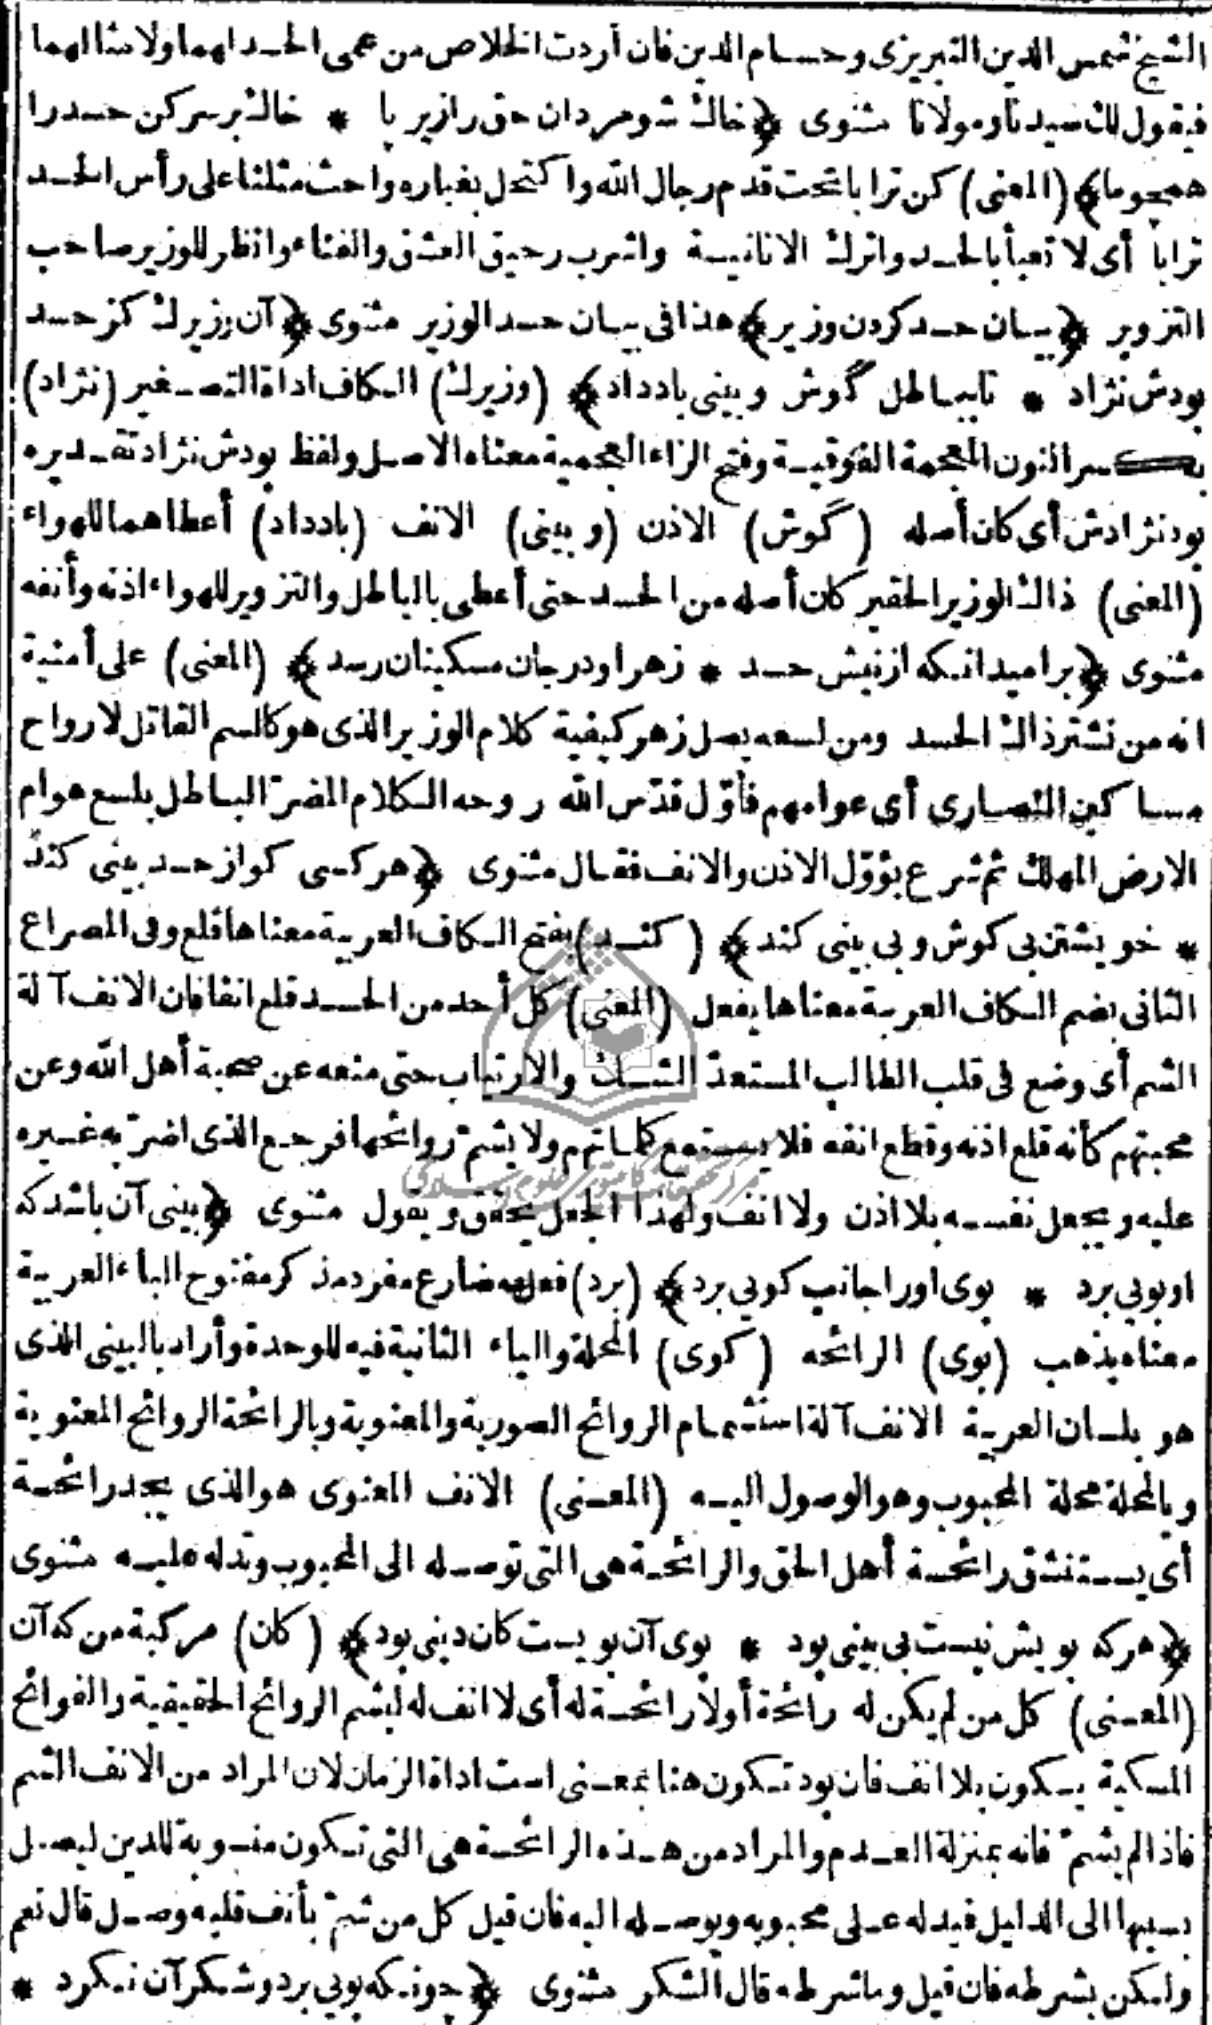 الشيخ شمس الدين التبريزى وحسام الدين فان أردت الخلاص من عمى الحسد لهما ولامثالهما
فيقول لك سيدنا ومولانا مثنوى ﴿خاك شو مردان حق را زير پا * خاك بر سر كن حسد را
همچو ما﴾ (المعنى) كن ترابا تحت قدم رجال الله واكتحل بغباره واحث مثلنا على رأس الحسد
ترابا أى لا تعبأ بالحسد واترك الانانيسة واشرب رحيق العشق والفناء وانظر للوزير صاحب
التزوير ﴿بيان حسد كردن وزير﴾ هذا فى بيان حسد الوزير مثنوى ﴿آن وزيرك كز حسد
بودش نژاد * تا بباطل گوش وبينى باد داد﴾ (وزيرك) الكاف اداة التصغير (نژاد)
بكسر النون المعجمة الفوقية وفتح الزاء العجمية معناه الاصل ولفظ بودش نژاد تقديره
بود نژادش أى كان أصله (گوش) الاذن (وبينى) الانف (باد داد) أعطاهما للهواء
(المعنى) ذاك الوزير الحقير كان أصله من الحسد حتى أعطى بالباطل والتزوير للهواء اذنه وأنفه
مثنوى ﴿بر اميد انكه از نيش حسد * زهر او در جان مسكينان رسد﴾ (المعنى) على أمنية
انه من نشتر ذاك الحسد ومن لسعه يصل زهر كيفية كلام الوزير الذى هو كالسم القاتل لارواح
مساكين النصارى أى عوامهم فأوّل قدّس الله روحه الكلام المضرّ الباطل بلسع هوام
الارض المهلك ثم شرع يؤوّل الاذن والانف فقال مثنوى ﴿هر كسى كو از حسد بينى كند
* خويشتن بى كوش وبى بينى كند﴾ (كند) بفتح الكاف العربية معناها قلع وفى المصراع
الثانى بضم الكاف العربية معناها يفعل (المعنى) كل أحد من الحسد قلع انفا فان الانف آلة
الشم أى وضع فى قلب الطالب المستعدّ الشك والارتياب حتى منعه عن صحبة أهل الله وعن
محبتهم كأنه قلع اذنه وقطع انفه فلا يستمع كلماتهم ولا يشمّ روائحها فرجع الذى اضرّ به غيره
عليه ويجعل نفسه بلا اذن ولا انف ولهذا الجعل يحقق ويقول مثنوى ﴿بينى آن باشد كه
او بويى برد * بوى او را جانب كويى برد﴾ (برد) فعل مضارع مفرد مذكر مفتوح الباء العربية
معناه يذهب (بوى) الرائحه (كوى) المحلة والياء الثانية فيه للوحدة وأراد بالبينى الذى
هو بلسان العربية الانف آلة استشمام الروائح الصورية والمعنوية وبالرائحة الروائح المعنوية
وبالمحلة محلة المحبوب وهو الوصول اليه (المعنى) الانف المعنوى هو الذى يجد رائحة
أى يستنشق رائحة أهل الحق والرائحة هى التى توصله الى المحبوب وتدله عليه مثنوى
﴿هر كه بويش نيست بى بينى بود * بوى آن بويست كان دينى بود﴾ (كان) مركبة من كه آن
(المعنى) كل من لم يكن له رائحة أو لا رائحة له أى لا انف له ليشم الروائح الحقيقية والفوائح
المسكية يكون بلا انف فان بود تكون هنا بمعنى است اداة الزمان لان المراد من الانف الشم
فاذا لم يشمّ فانه بمنزلة العدم والمراد من هذه الرائحة هى التى تكون منسوبة للدين ليصل
بسببها الى الدليل فيدله على محبوبه ويوصله اليه فان قيل كل من شمّ بأنف قلبه وصل قال نعم
ولكن بشرطه فان قيل وما شرطه قال الشكر مثنوى ﴿چونكه بويى برد وشكر آن نكرد *